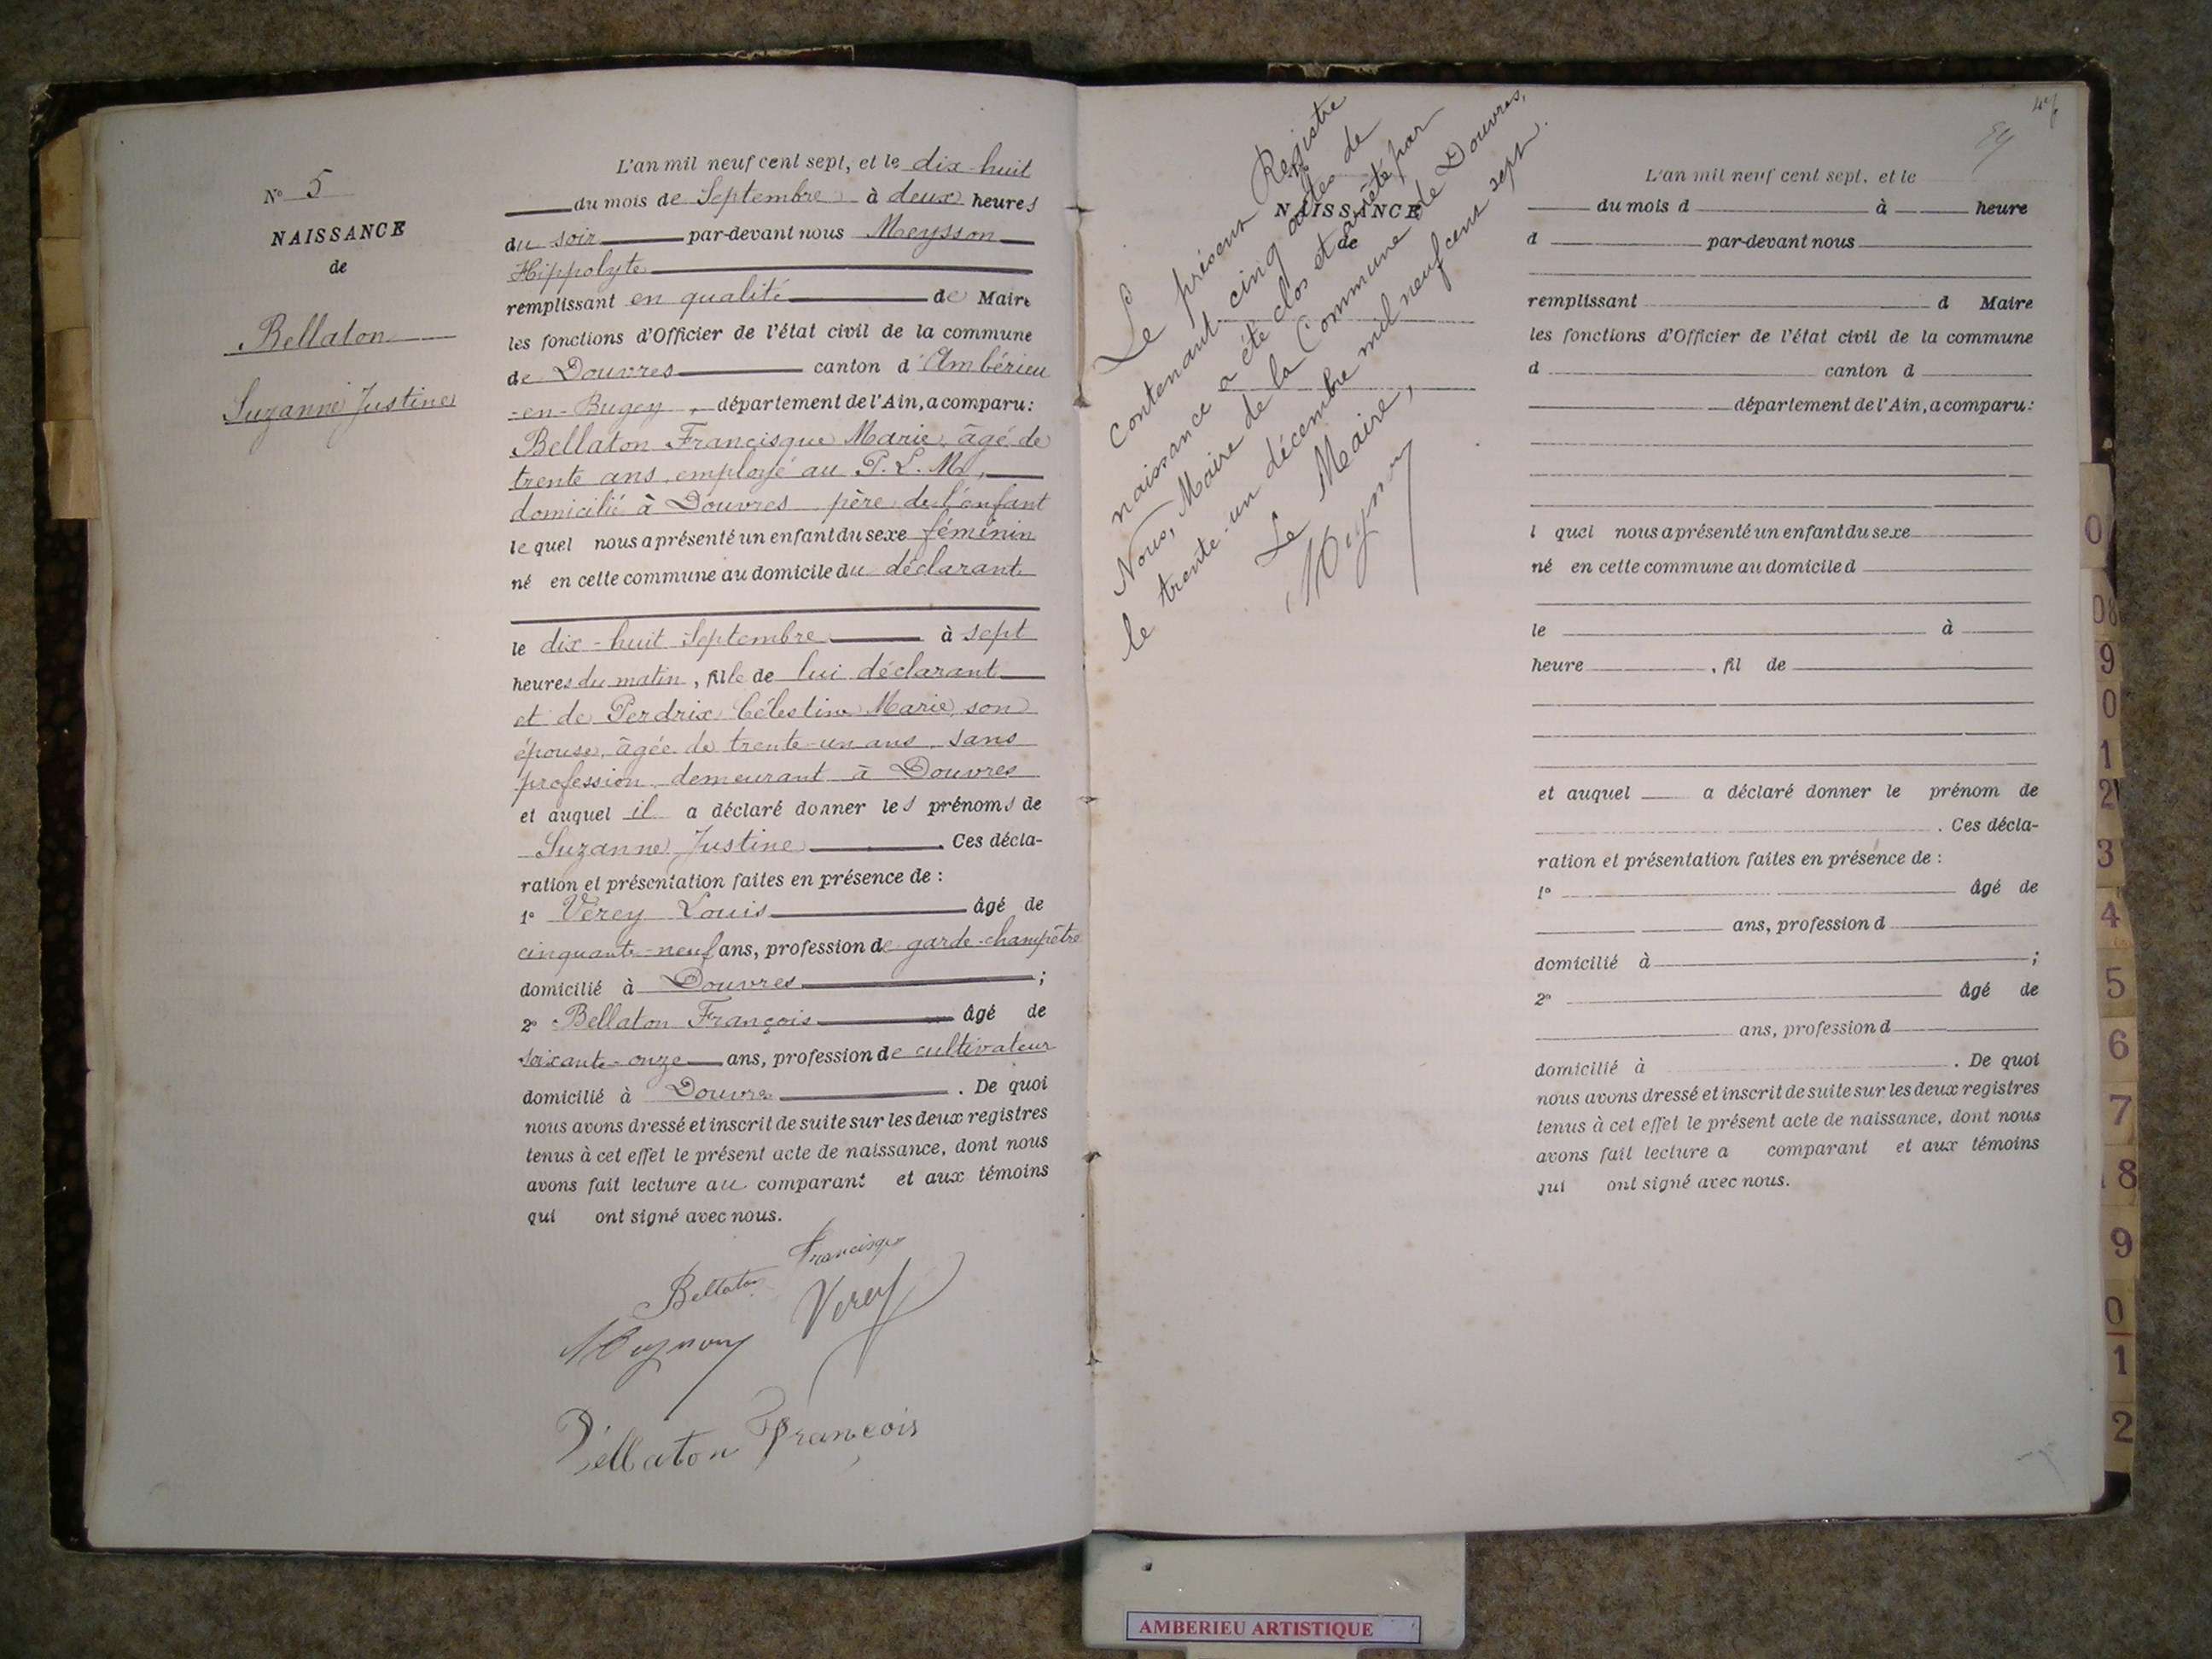 N° 5
NAISSANCE
de
Bellaton
Suzanne Justine
L'an mil neuf cent sept, et le dix-huit
du mois de Septembre à deux heures
du soir par-devant nous Meysson
Hippolyte
remplissant en qualité de Maire
les fonctions d'Officier de l'état civil de la commune
de Douvres canton d'Ambérieu
-en-Bugey, département de l'Ain, a comparu:
Bellaton Francisque Marie, âgé de
trente ans, employé au P. L. M.,
domicilié à Douvres père de l'enfant
lequel nous a présenté un enfant du sexe féminin
né en cette commune au domicile du déclarant
le dix-huit Septembre à sept
heures du matin, fille de lui déclarant
et de Perdrix Célestine Marie, son
épouse, âgée de trente-un ans, sans
profession, demeurant à Douvres
et auquel il a déclaré donner les prénoms de
Suzanne Justine. Ces décla-
ration et présentation faites en présence de :
1° Verey Louis âgé de
cinquante-neuf ans, profession de garde-champêtre
domicilié à Douvres ;
2° Bellaton François âgé de
soixante-onze ans, profession de cultivateur
domicilié à Douvres. De quoi
nous avons dressé et inscrit de suite sur les deux registres
tenus à cet effet le présent acte de naissance, dont nous
avons fait lecture au comparant et aux témoins
qui ont signé avec nous.
Bellaton Francisque
Verey
Bellaton François
Le présent Registre
contenant cinq actes de
naissance a été clos et arrêté par
Nous, Maire de la Commune de Douvres,
le trente-un décembre mil neuf cent sept.
Le Maire,
NAISSANCE
de
L'an mil neuf cent sept, et le
du mois d à heure
d par-devant nous
remplissant d Maire
les fonctions d'Officier de l'état civil de la commune
d canton d
département de l'Ain, a comparu:
l quel nous a présenté un enfant du sexe
né en cette commune au domicile d
le à
heure , fil de
et auquel a déclaré donner le prénom de
. Ces décla-
ration et présentation faites en présence de :
1° âgé de
ans, profession d
domicilié à ;
2° âgé de
ans, profession d
domicilié à . De quoi
nous avons dressé et inscrit de suite sur les deux registres
tenus à cet effet le présent acte de naissance, dont nous
avons fait lecture a comparant et aux témoins
qui ont signé avec nous.
0
08
9
0
1
2
3
4
5
6
7
8
9
0
1
2
AMBERIEU ARTISTIQUE